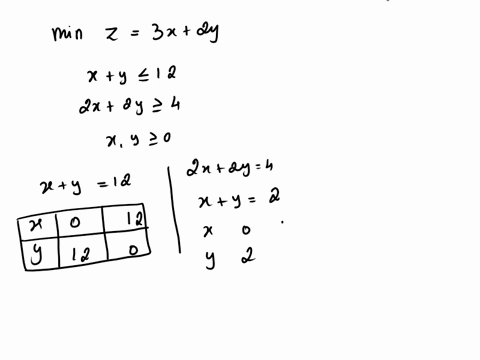 min z = 3x + 2y
x + y ≤ 12
2x + 2y ≥ 4
x, y ≥ 0
x + y = 12
x 0 12
y 12 0
2x + 2y = 4
x + y = 2
x 0
y 2